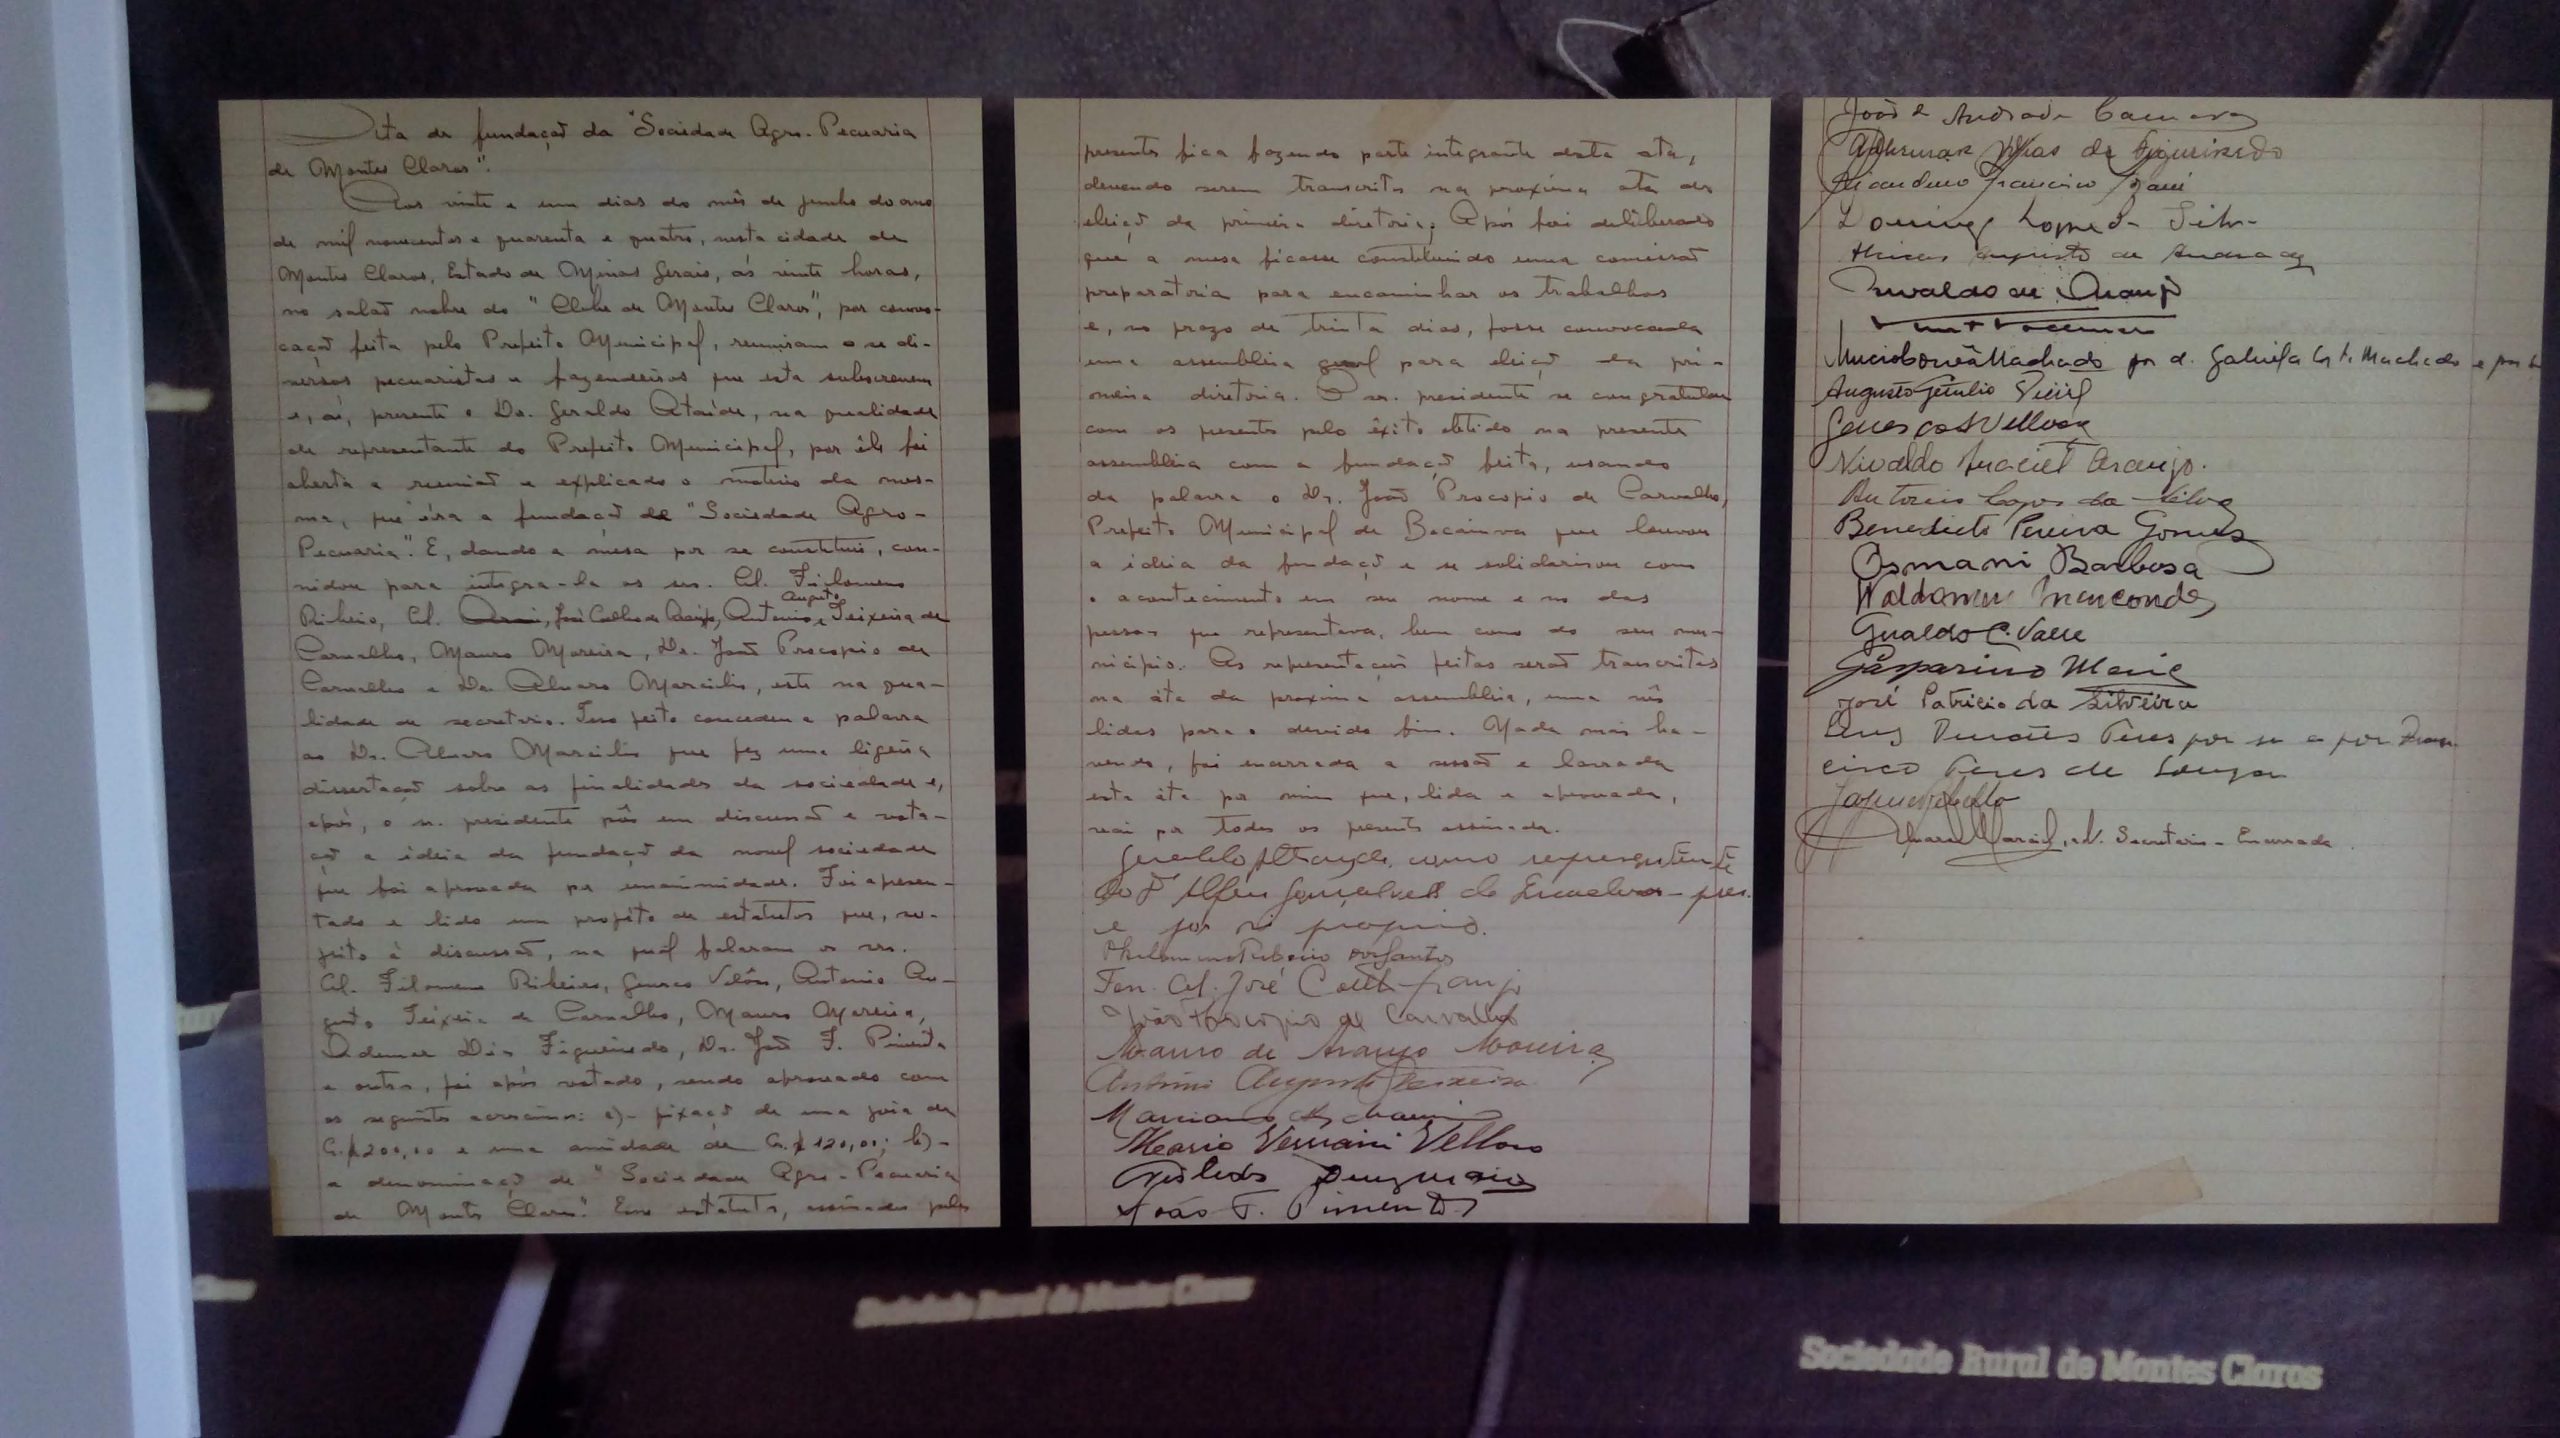 Ata de fundação da "Sociedade Agro-Pecuaria
de Montes Claros".
Aos vinte e um dias do mês de junho do ano
de mil novecentos e quarenta e quatro, nesta cidade de
Montes Claros, Estado de Minas Gerais, ás vinte horas,
no salão nobre do "Clube de Montes Claros", por convo-
cação feita pelo Prefeito Municipal, reuniram-se di-
versos pecuaristas e fazendeiros que esta subscrevem
e, aí, presente o Dr. Geraldo Ataíde, na qualidade
de representante do Prefeito Municipal, por êle foi
aberta a reunião e explicado o motivo da mes-
ma, que éra a fundação de "Sociedade Agro-
Pecuaria". E, dando a mesa por se constituir, con-
vidou para integra-la os srs. Cel. Filomeno
Ribeiro, Cel. José Coelho de Araújo, Antonio Augusto Teixeira de
Carvalho, Mauro Moreira, Dr. João Procopio de
Carvalho e Dr. Alvaro Marcilio, este na qua-
lidade de secretario. Isso feito concedeu a palavra
ao Dr. Alvaro Marcilio que fez uma ligeira
dissertação sobre as finalidades da sociedade e,
após, o sr. presidente pôs em discussão e vota-
ção a ideia da fundação da novel sociedade
que foi aprovada por unanimidade. Foi apresen-
tado e lido um projéto de estatutos que, su-
jeito à discussão, na qual falaram os srs.
Cel. Filomeno Ribeiro, Genesco Velôso, Antonio Au-
gusto Teixeira de Carvalho, Mauro Moreira,
Ademar Dias Figueiredo, Dr. João F. Pimenta
e outros, foi após votado, sendo aprovado com
os seguintes acrescimos: a)- fixação de uma joia de
Cr.$200,00 e uma anuidade de Cr.$120,00; b)-
a denominação de "Sociedade Agro-Pecuaria
de Montes Claros". Esses estatutos, assinados pelos
presentes fica fazendo parte integrante desta ata,
devendo serem transcritos na proxima ata da
eleição da primeira diretoria. Após foi deliberado
que a mesa ficasse constituindo uma comissão
preparatoria para encaminhar os trabalhos
e, no prazo de trinta dias, fosse convocada
uma assembleia geral para eleição da pri-
meira diretoria. O sr. presidente se congratulou
com os presentes pelo êxito obtido na presente
assembleia com a fundação feita, usando
da palavra o Dr. João Procopio de Carvalho,
Prefeito Municipal de Bocaiuva que louvou
a ideia da fundação e se solidarisou com
o acontecimento em seu nome e no das
pessoas que representava, bem como do seu mu-
nicipio. As representações feitas serão transcritas
na áta da proxima assembleia, uma vês
lidas para o devido fim. Nada mais ha-
vendo, foi encerrada a sessão e lavrada
esta áta por mim que, lida e aprovada,
vai por todos os presentes assinada.
Geraldo Athayde, como representante
do Gonçalves de
e por si proprio.
Philomeno Ribeiro dos Santos
Ten. Cel. José Coelho Araujo
João Procopio de Carvalho
Mauro de Araujo Moreira
Antonio Augusto Teixeira
Mario Versiani Velloso
João F. Pimenta
João de Andrade Camara
Adhemar Dias de Figueiredo
Francisco
Lopes da Silva
Augusto de Andrade
Nivaldo de Araujo
Machado por d. Gabriela Machado e por
Augusto Getulio
Velloso
Nivaldo Maciel Araujo.
Antonio Lopes da Silva
Benedicto Pereira Gomes
Osmani Barbosa
Waldomir Marcondes
Geraldo C. Valle
Gasparino
José Patricio da Silveira
Peres por si e por Fran-
cisco Peres de Souza
Alvaro Marcilio, Secretario - Encerrada.
Sociedade Rural de Montes Claros
Sociedade Rural de Montes Claros